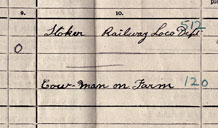 9. 10.
512
0 Stoker Railway Loco Dept
Cow-man on Farm 120